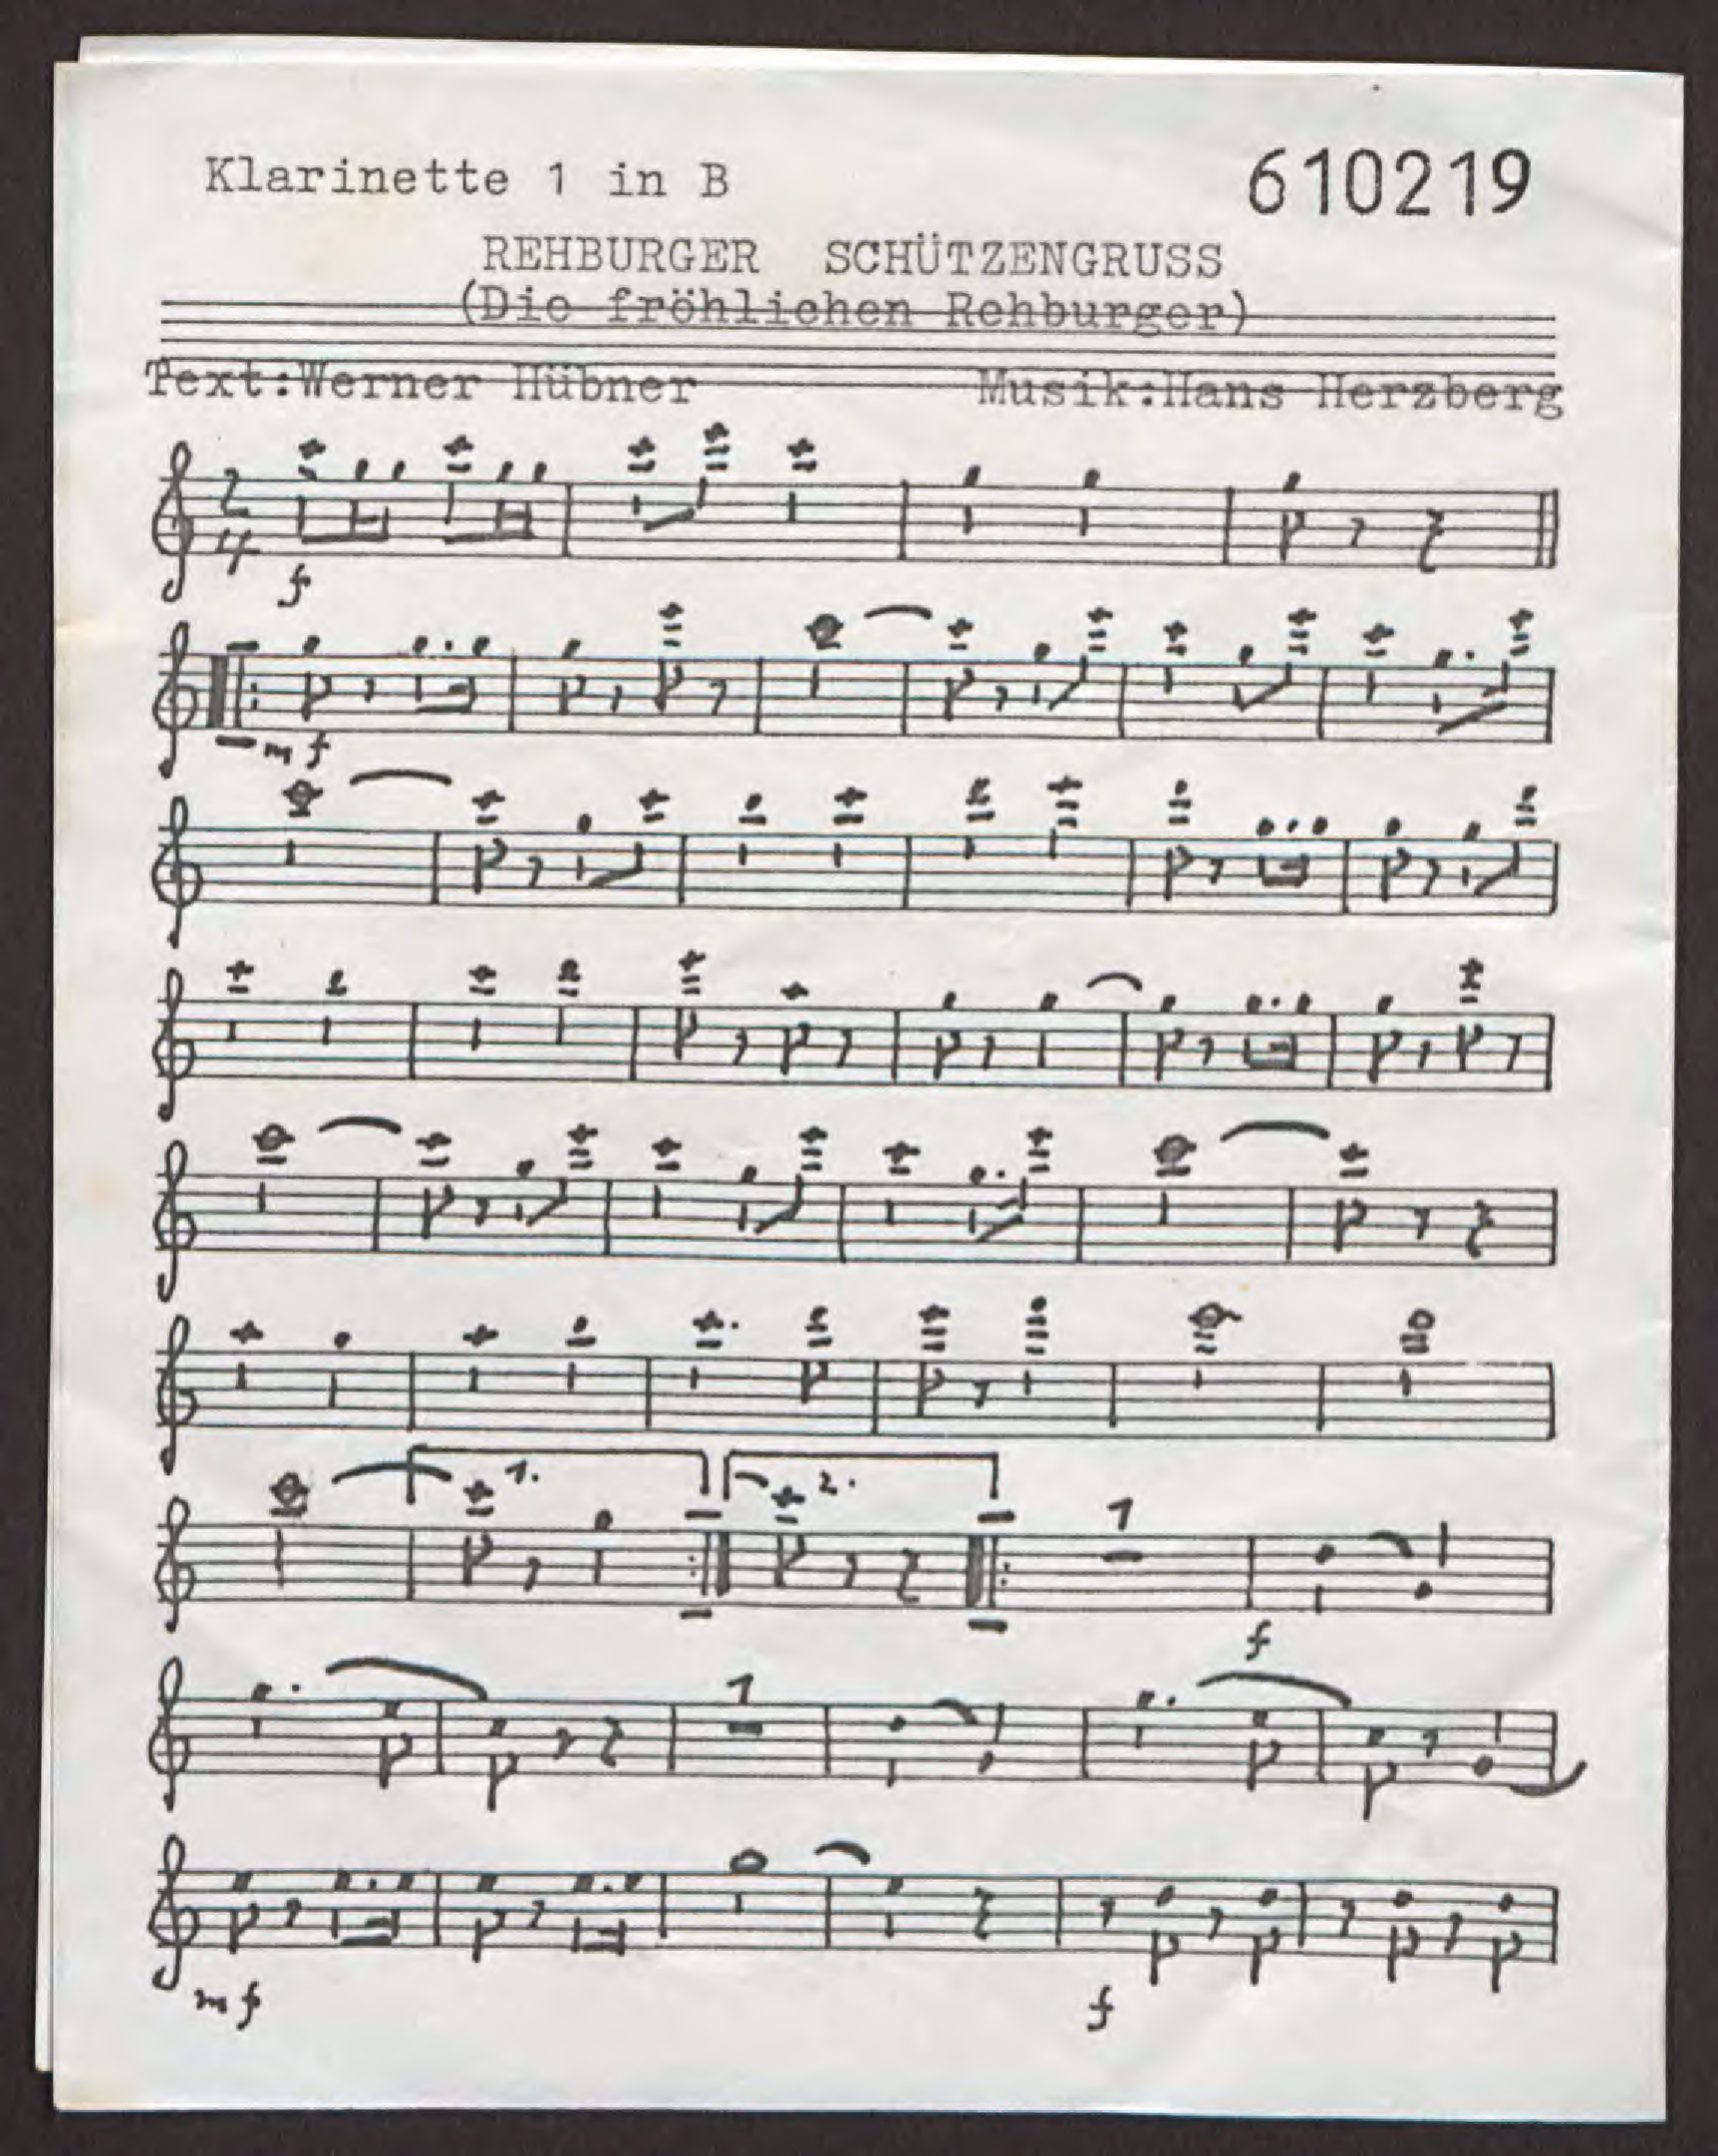 Klarinette 1 in B 610219
REHBURGER SCHÜTZENGRUSS
(Die fröhlichen Rehburger)
Text:Werner Hübner Musik:Hans Herzberg
2
4
f
mf
1. 2. 1
f
1
mf f